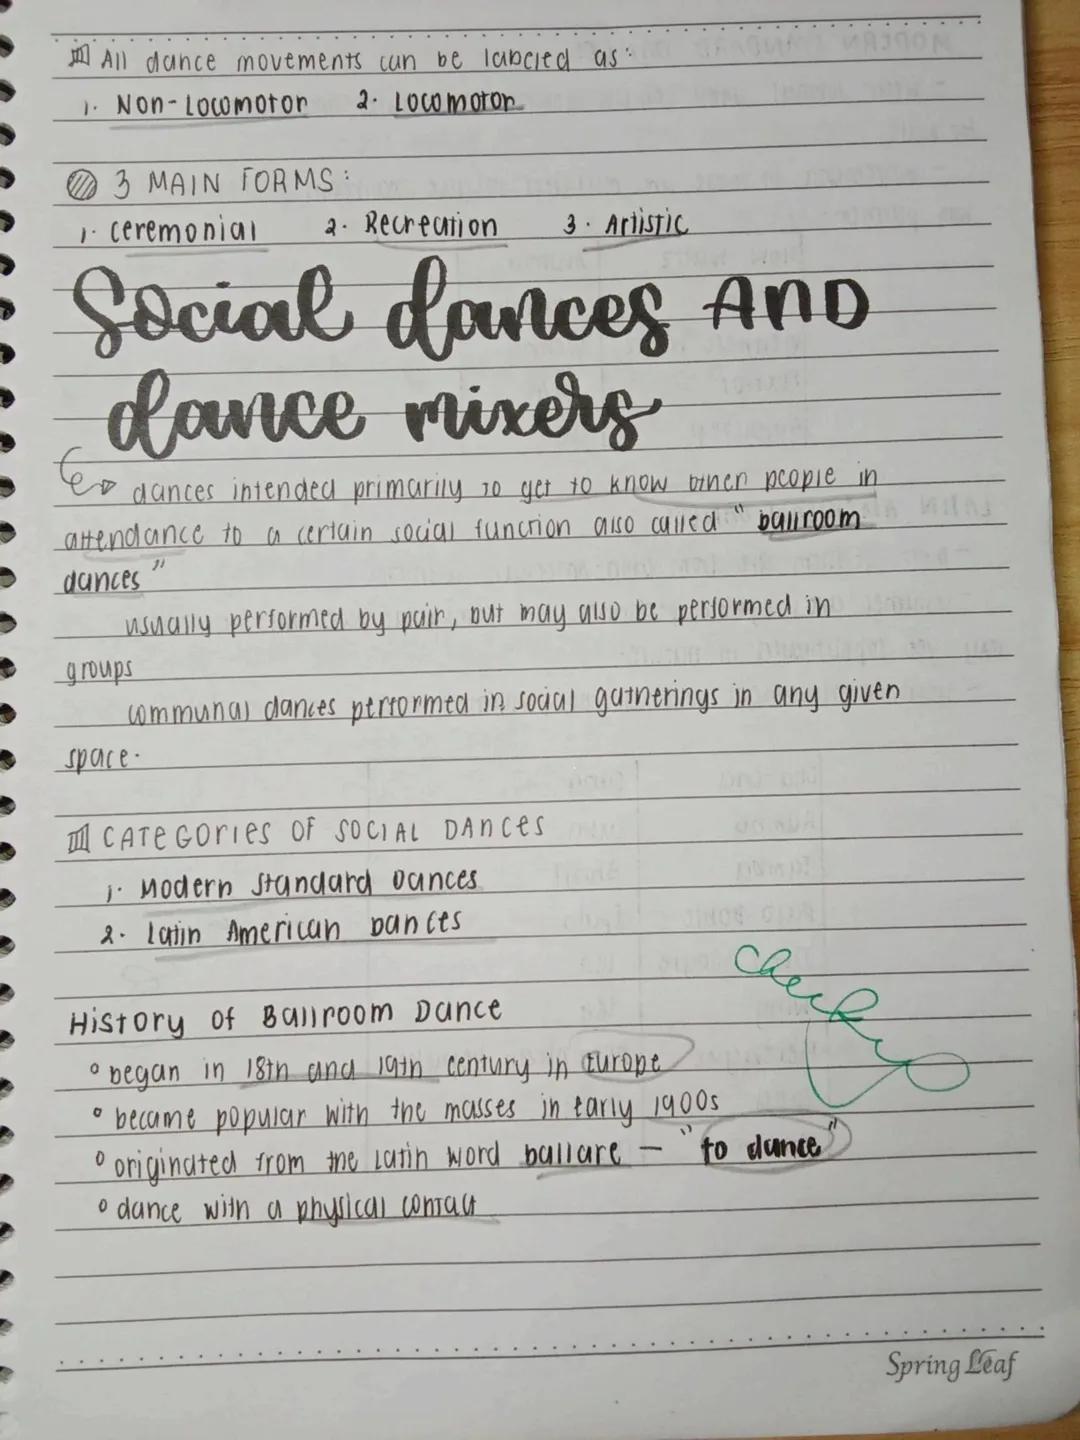 All dance movements can be labeled as:
1. Non-Locomotor 2. Locomotor
3 MAIN FORMS:
1. Ceremonial 2. Recreation 3. Artistic
Social dances AND
dance mixers
dances intended primarily to get to know other people in
attendance to a certain social function also called "ballroom
dances"
usually performed by pair, but may also be performed in
groups
communal dances performed in social gatherings in any given
space.
CATEGORIES OF SOCIAL DANCES
1. Modern Standard Dances
2. Latin American Dances
check
History of Ballroom Dance
° began in 18th and 19th century in Europe
° became popular with the masses in early 1900s
° originated from the Latin word ballare - "to dance"
° dance with a physical contact
Spring Leaf